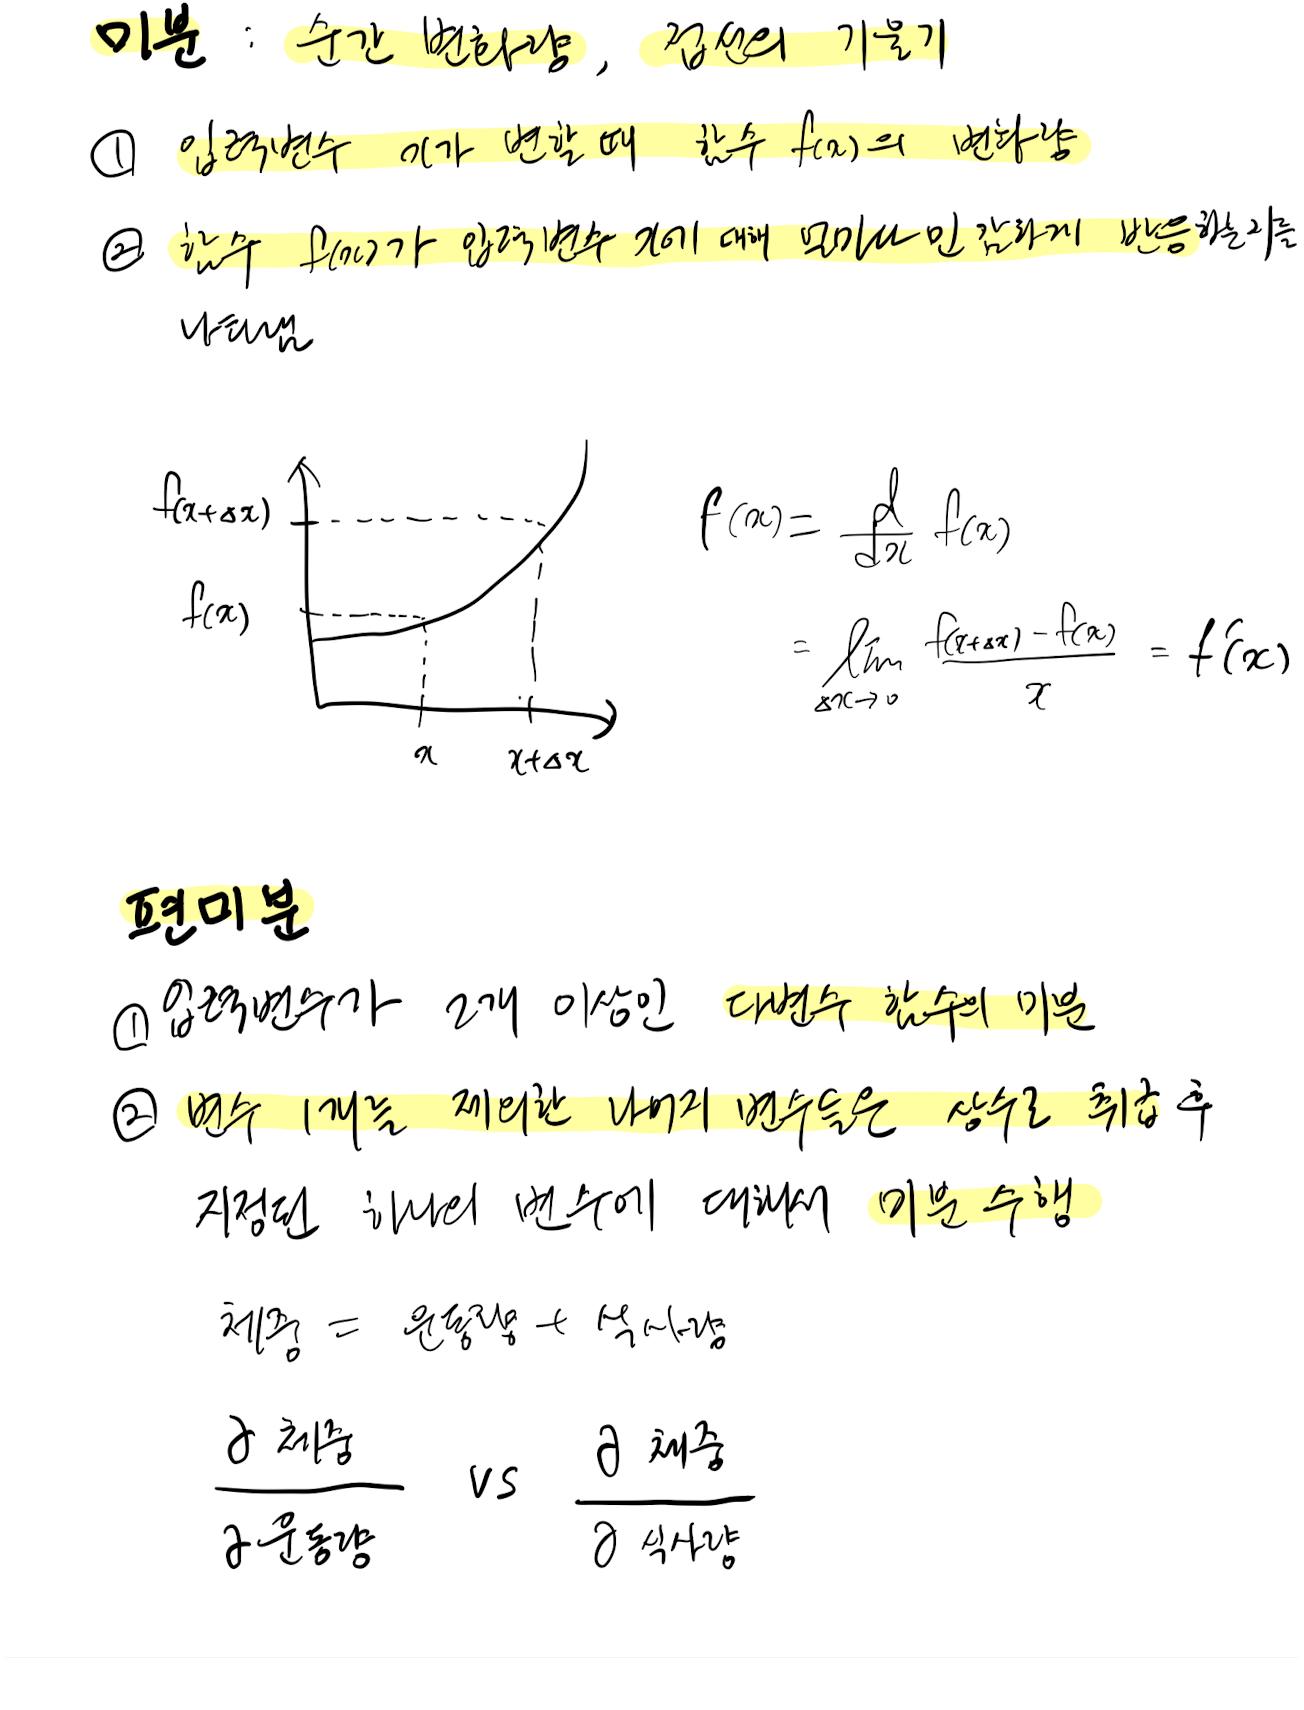 미분 : 순간 변화량, 접선의 기울기
① 입력변수 x가 변할 때 함수 f(x)의 변화량
② 함수 f(x)가 입력변수 x에 대해 얼마나 민감하게 반응하는지를
나타냄
f(x+Δx)
f(x)
x
x+Δx
f(x) = d/dx f(x)
= lim Δx→0 (f(x+Δx) - f(x))/x = f'(x)
편미분
① 입력변수가 2개 이상인 다변수 함수의 미분
② 변수 1개를 제외한 나머지 변수들은 상수로 취급 후
지정된 하나의 변수에 대해서 미분 수행
체중 = 운동량 + 식사량
∂ 체중 / ∂ 운동량 vs ∂ 체중 / ∂ 식사량